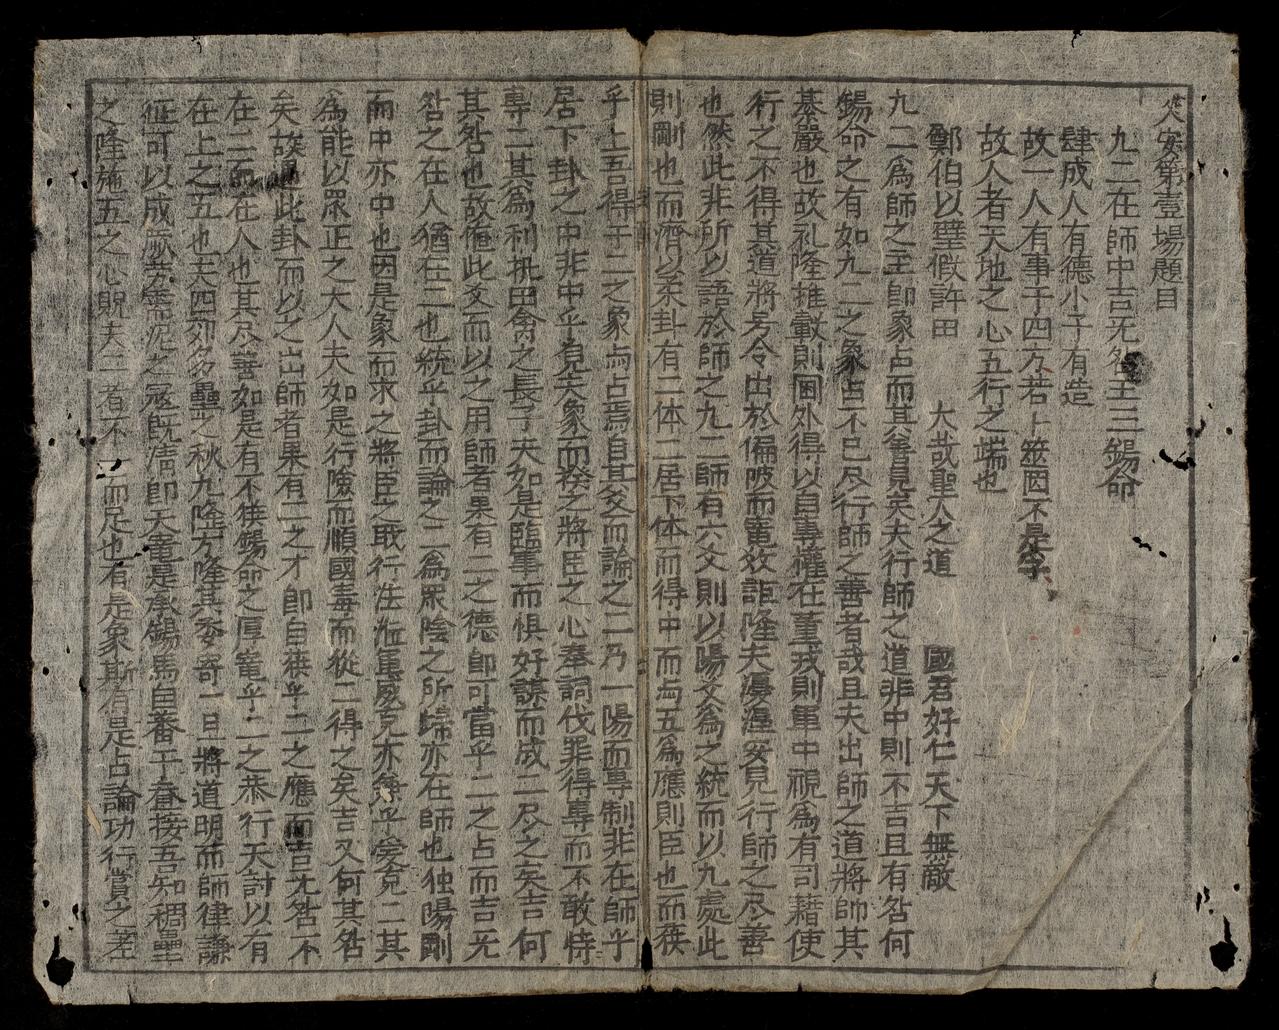 延安第壹場題目
九二在師中吉无咎王三錫命
肆成人有德小子有造
故一人有事于四方若卜筮罔不是孚
故人者天地之心五行之端也
鄭伯以璧假許田 大哉聖人之道 國君好仁天下無敵
九二爲師之主即象占而其善見矣夫行師之道非中則不吉且有咎何
錫命之有如九二之象占不已尽行師之善者或且夫出師之道將帥其
綦嚴也故礼隆推轂則閫外得以自專權在董戎則軍中視爲有司藉使
行之不得其道將号令出於偏陂而寵效詎隆夫渥安見行師之尽善
也然此非所以語於師之九二師有六爻則以陽爻爲之統而以九處此
則剛也而濟以柔卦有二体二居下体而得中而与五爲應則臣也而獲
乎上吾得于二之象与占焉自其爻而論之二乃一陽而專制非在師乎
居下卦之中非中乎有是象而揆之將臣之心奉詞伐罪得專而不敢恃
專二其爲利執田禽之長子夫如是臨事而惧好謀而成二尽之矣吉何
其咎也故値此爻而以之用師者果有二之德即可當乎二之占而吉无
咎之在人猶在二也統乎卦而論之二爲眾陰之所歸亦在師也独陽剛
而中亦中也因是象而求之將臣之戢行法涖軍威克亦兼乎爱克二其
為能以眾正之大人夫如是行險而順國毒而從二得之矣吉又何其咎
矣故遇此卦而以之出師者果有二之才即自获乎二之應而吉无咎不
在二而在人也其尽善如是有不获錫命之厚寵乎二之恭行天討以有
在上之五也夫四郊多壘之秋九陰方隆其委寄一日將道明而師律謙
征可以成之寇既清即天書是承錫馬自蕃于晝接吾知稠疊
之隆施五之心貺夫二者不一而足也有是象斯有是占論功行賞之差